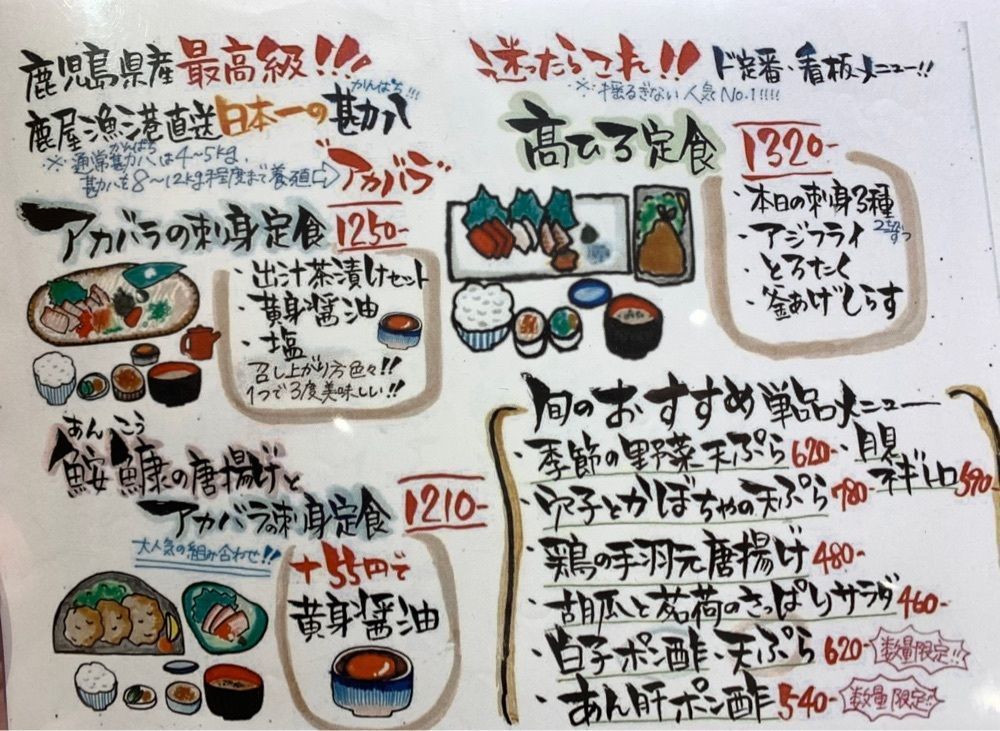 鹿児島県産 最高級!!!
鹿屋漁港直送 日本一の勘八
かんぱち!!!
※通常勘八は4〜5kg、
かんぱち
勘八を8〜12kg程度まで養殖⇨アカバラ
アカバラの刺身定食 1250-
・出汁茶漬けセット
・黄身醤油
・塩
召し上がり方色々!!
1つで3度美味しい!!
あんこう
鮟鱇の唐揚げと
アカバラの刺身定食 1210-
大人気の組み合わせ!!
+55円で
黄身醤油
迷ったらこれ!! ド定番・看板メニュー!!
※揺るぎない人気No.1!!!!
高ひろ定食 1320-
・本日の刺身3種
2切れずつ
・アジフライ
・とろたく
・釜あげしらす
旬のおすすめ単品メニュー
・季節の野菜天ぷら 620-
・穴子とかぼちゃの天ぷら 780-
・鶏の手羽元唐揚げ 480-
・胡瓜と茗荷のさっぱりサラダ 460-
・白子ポン酢・天ぷら 620- 数量限定!!
・あん肝ポン酢 540- 数量限定!!
・自見
ネギトロ 590-